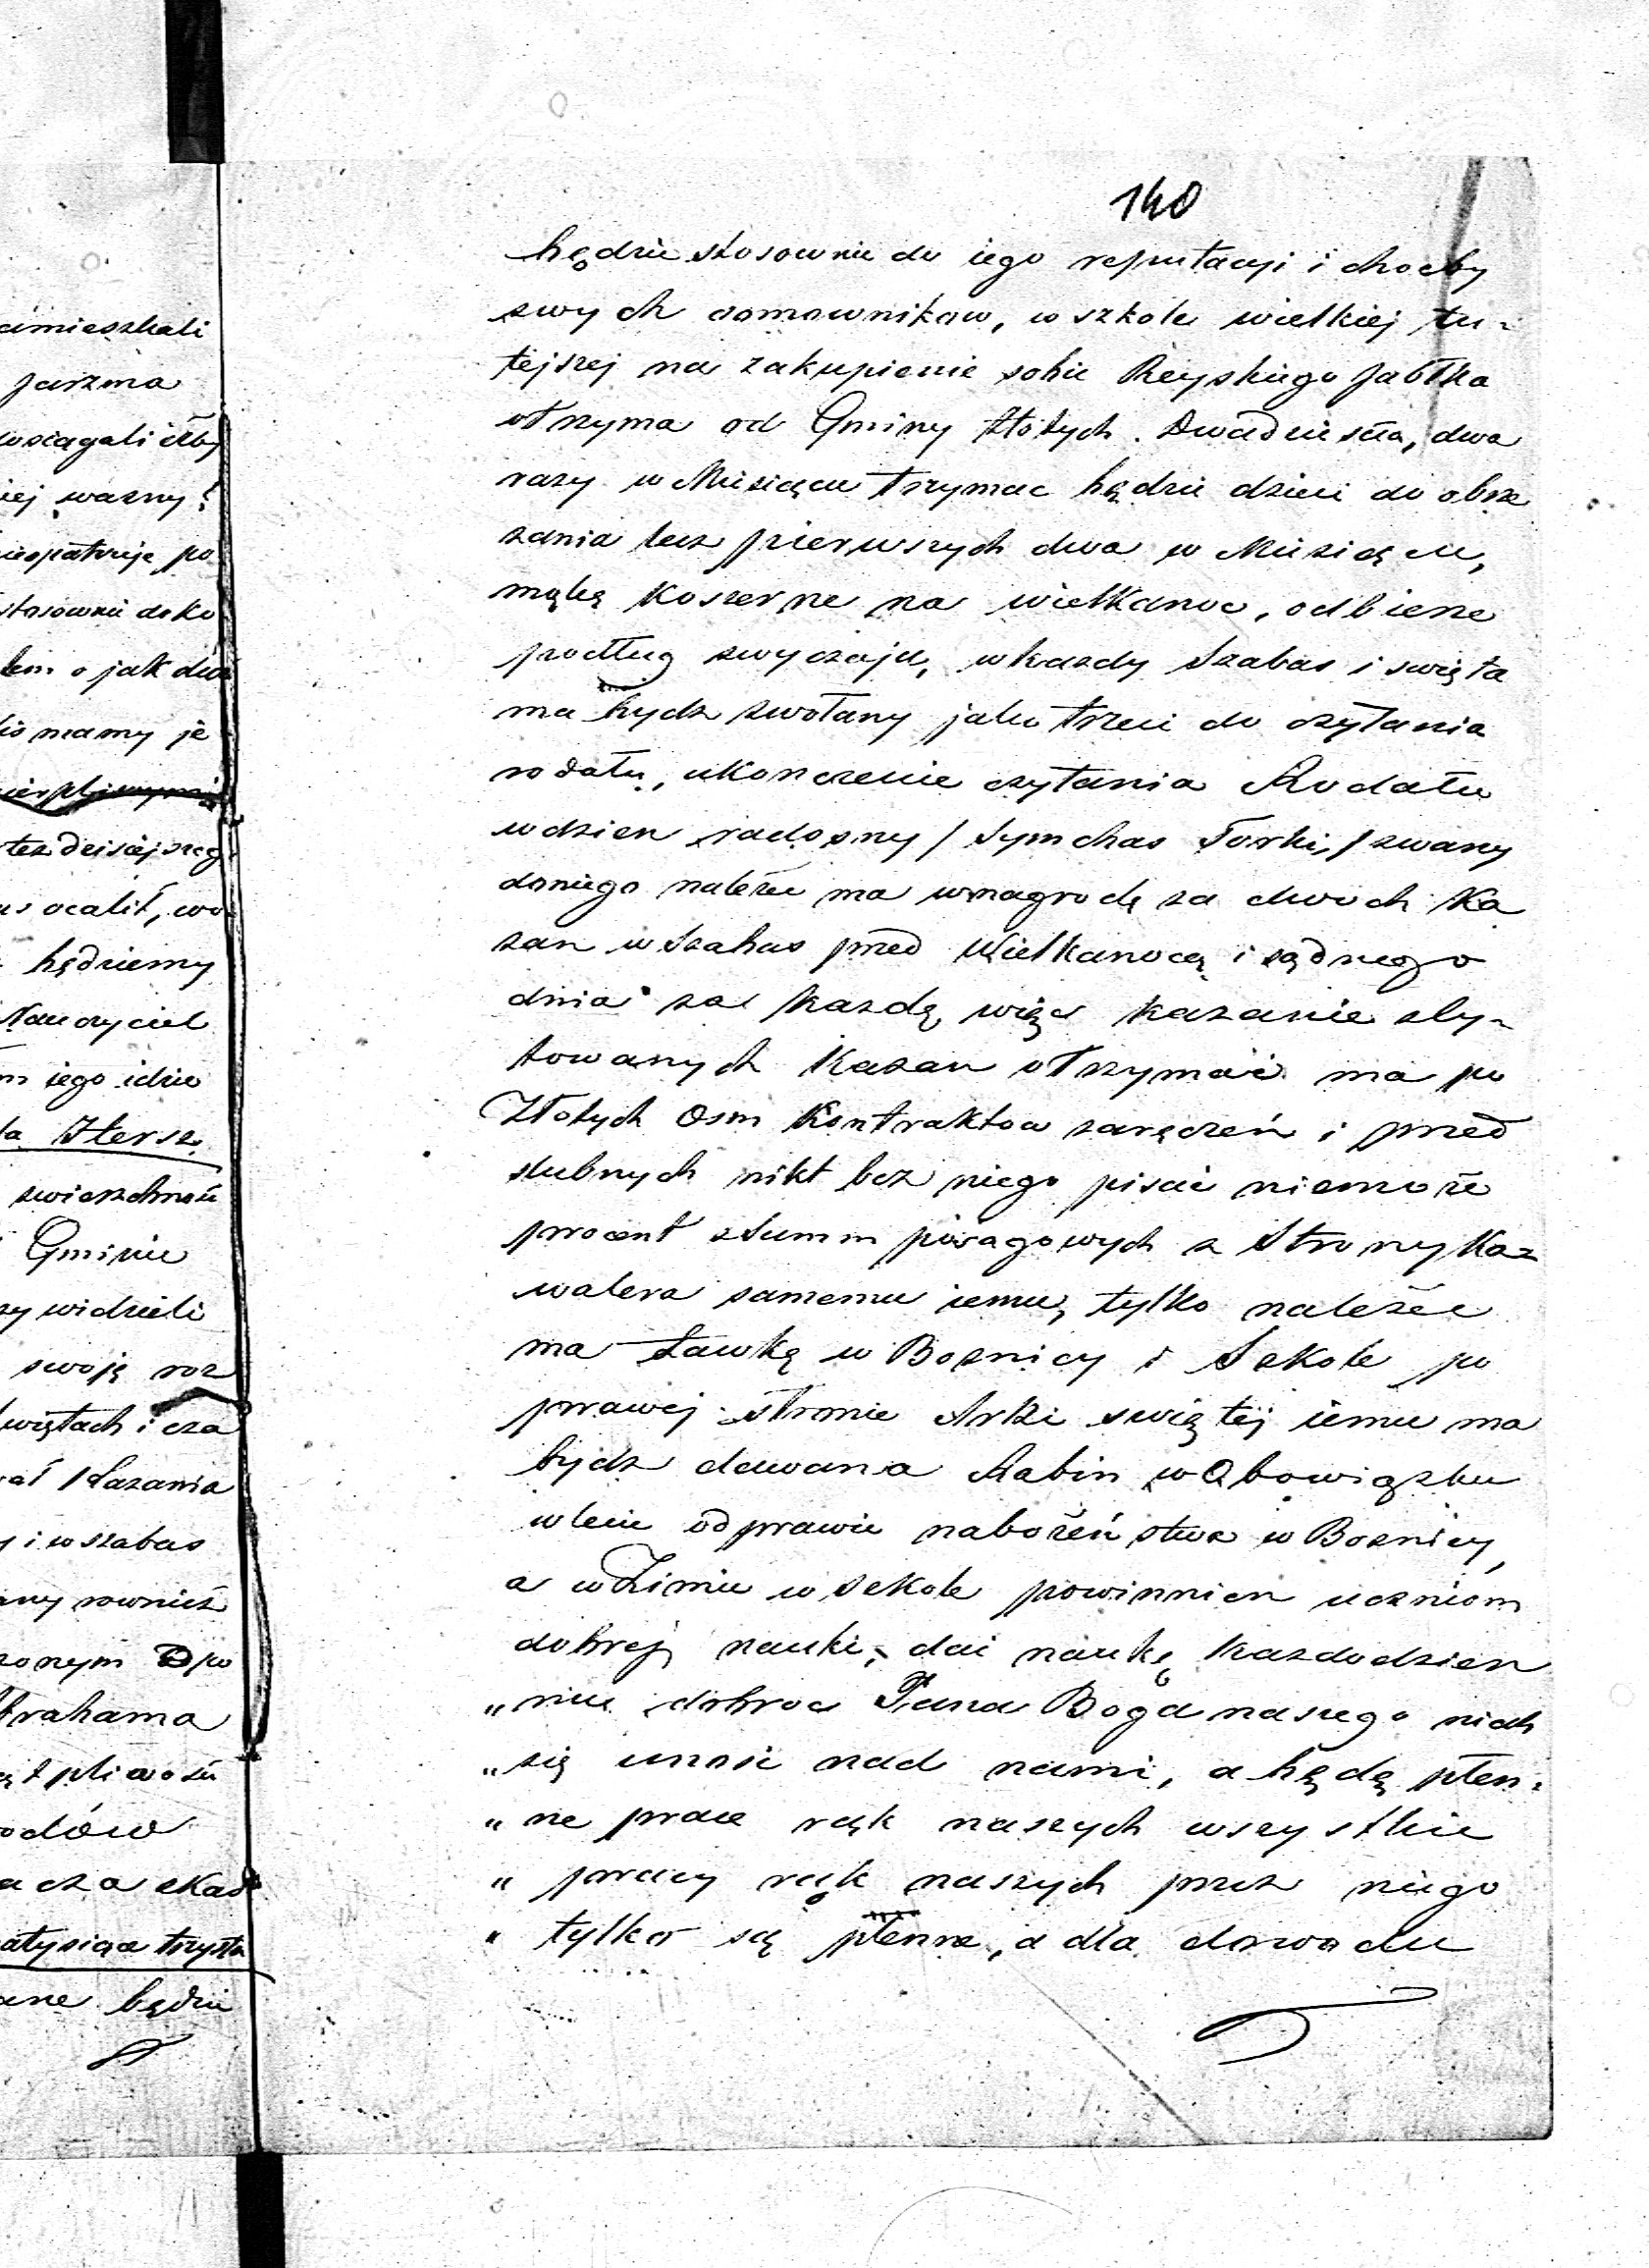 140
będzie stosownie do iego reputacyi i chocby
swych domownikow, w szkole wielkiej tu-
tejszej na zakupienie sobie Reyskiego Jabłka
otrzyma od Gminy złotych. Dwadziescia, dwa
razy w Miesiącu trzymac będzie dzieci do obrze
zania lecz pierwszych dwa w Miesiącu,
mąkę Koszerne na wielkanoc, odbierze
podług zwyczaju, w kazdy Szabas i swięta
ma bydz zwołany jako trzeci do czytania
rodału, ukonczenie czytania Rodału
w dzien radosny / Symchas Torhi, / zwany
doniego należeć ma w nagrodę za dwoch Ka
zan w Szabas pred Wielkanocą i sądnego
dnia za Kazdę więc kazanie zly-
towanych Kazan otrzymać ma po
Złotych Osm Kontraktow zaręczeń i przed
slubnych nikt bez niego pisać niemoże
procent z Summ posagowych z Strony Ka-
walera samemu iemu, tylko należeć
ma Ławkę w Boznicy i Szkole po
prawej stronie Arki swiętéj iemu ma
bydz dawana Rabin w Obowiązku
w lecie odprawie nabożeństwa w Boznicy,
a w Zimie w szkole powinnien uczniom
dobrej nauki, dai naukę Kazdodzien
„ nie dobroc Pana Boga naszego niech
„ się unosi nad nami, a będą płen-
„ ne prace rąk naszych wszystkie
„ pracy rąk naszych przez niego
„ tylko są płenne, a dla dowodu
zamieszkali
Jarzma
iej wazny
stosownie do Ko
lem o jak
mamy je
tez
ocalił, wo
będziemy
Nauczyciel
iego idzie
Hersz
zwierzchnosci
Gminie
widzieli
swoję roz
swiętach i cza
Kazania
i w szabas
rowniez
po
Abrahama
tysiąca trzysta
będzie